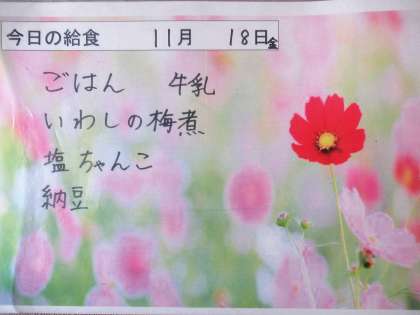 今日の給食 11月 18日金
ごはん 牛乳
いわしの梅煮
塩ちゃんこ
納豆